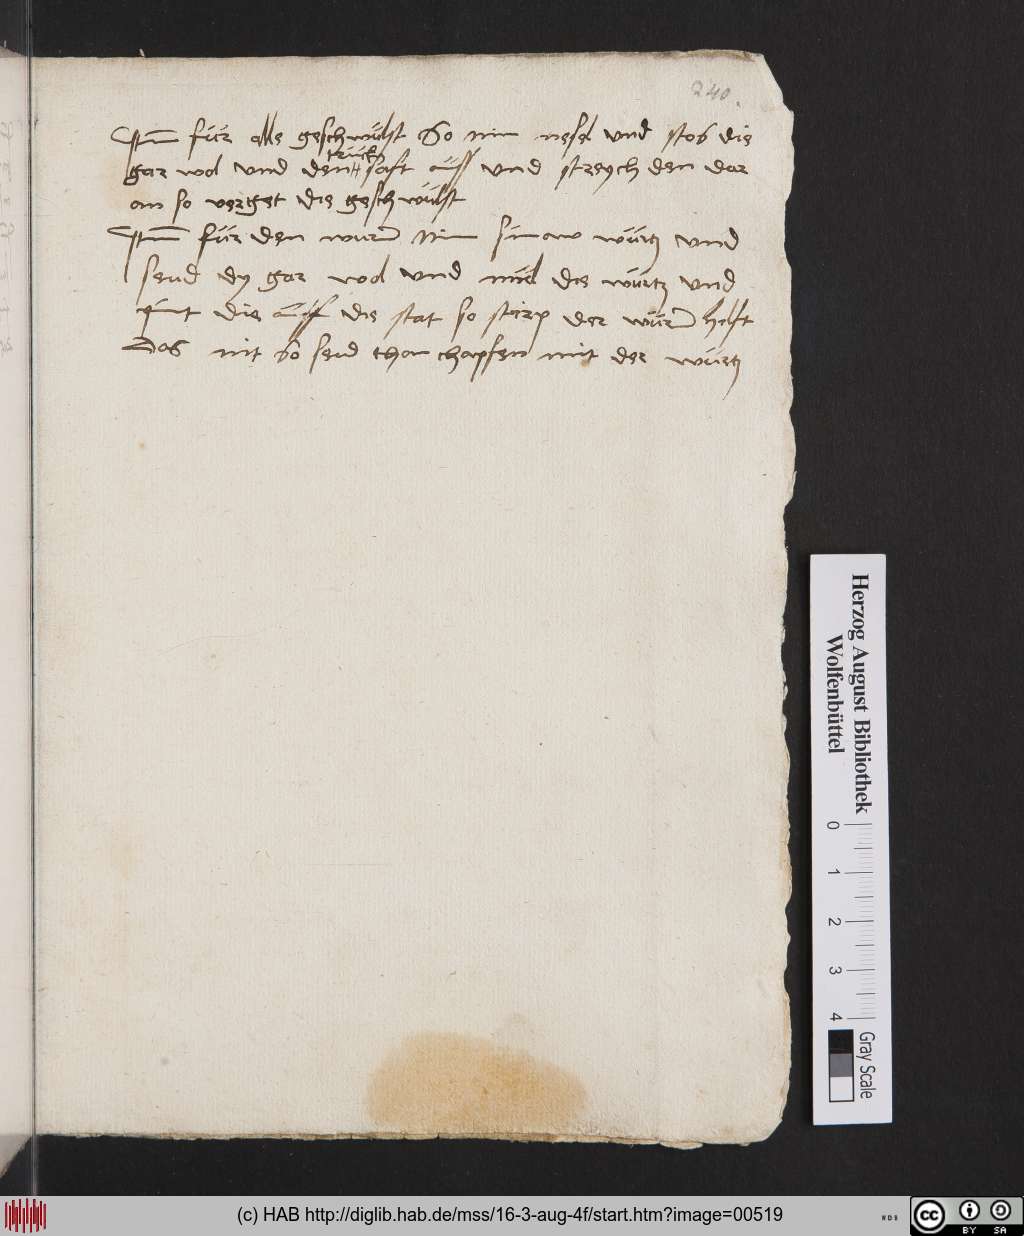 240.
Item für alle geschwulst So nim nesel und stos die
gar wol und den truck saft auss und streych den dar
an so verget die geschwulst
Item für den wurm Nim sinaw wurtz und
seud dy gar wol und die wurtz und
pint die auff die stat so stirp der wurm helft
Das nit So seud than chapfen mit der wurtz
Herzog August Bibliothek
Wolfenbüttel
0 1 2 3 4
Gray Scale
(c) HAB http://diglib.hab.de/mss/16-3-aug-4f/start.htm?image=00519
WDB
cc BY SA